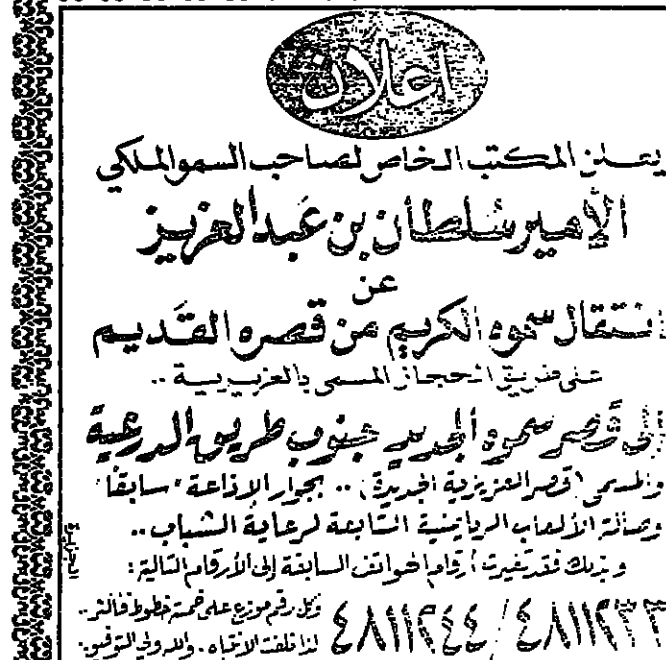 اعلان
يعلن المكتب الخاص لصاحب السمو الملكي
الأمير سلطان بن عبد العزيز
عن
انتقال سموه الكريم من قصره القديم
على طريق الحجاز المسمى بالعزيزية ..
إلى قصر سموه الجديد جنوب طريق الدرعية
والمسمى (قصر العزيزية الجديدة) .. بجوار الإذاعة "سابقا"
وصالة الألعاب الرياضية التابعة لرعاية الشباب ..
وبذلك فقد تغيرت أرقام الهواتف السابقة إلى الأرقام التالية :
٤٨١١٢٣٣ / ٤٨١١٢٤٤
وكل رقم موزع على خمسة خطوط فأكثر ..
لذا نلفت الانتباه . والله ولي التوفيق .